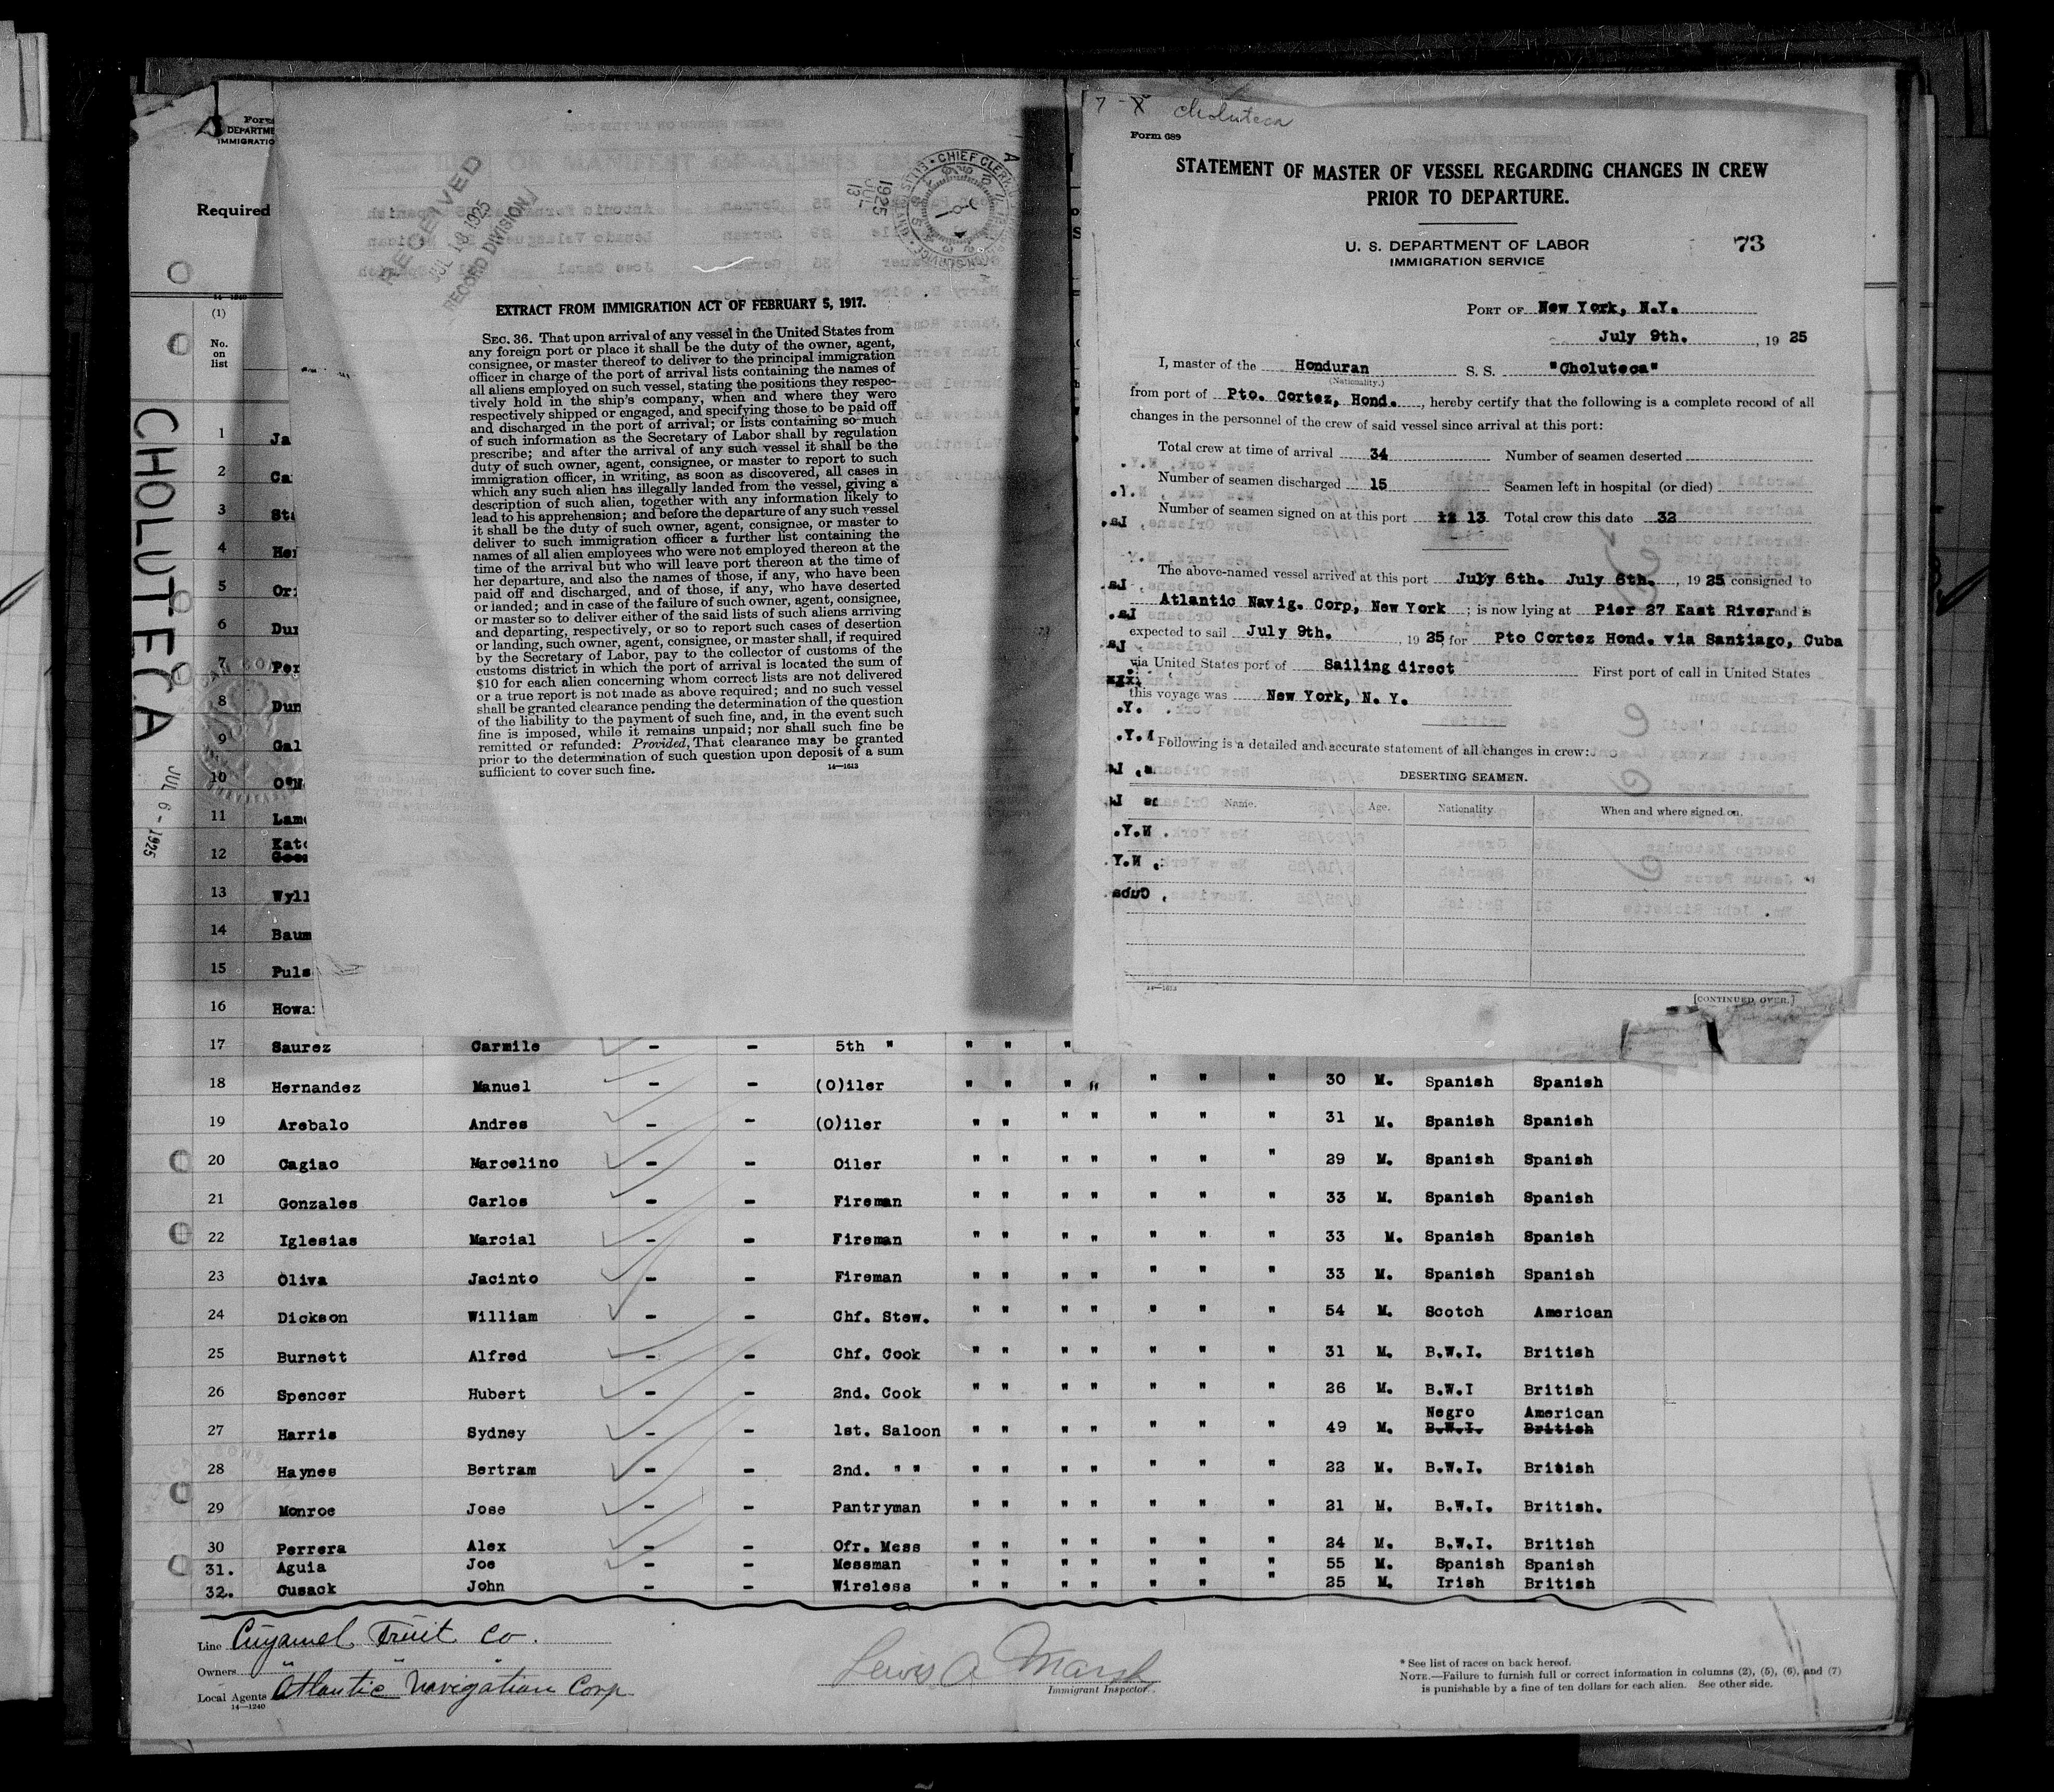 Form
DEPARTME
IMMIGRATIO
Required
14—1240
(1)
No.
on
list
CHOLUTECA
JUL 6 - 1925
1 Ja
2 Ca
3 St
4 He
5 Or
6 Du
7 Per
8 Dun
9 Gal
10 O'N
11 Lam
12 Kat
13 Wyll
14 Baum
15 Puls
16 Howa
RECEIVED
JUL 18 1925
RECORD DIVISION
CHIEF CLERK
1925
JUL
13
EXTRACT FROM IMMIGRATION ACT OF FEBRUARY 5, 1917.
SEC. 36. That upon arrival of any vessel in the United States from
any foreign port or place it shall be the duty of the owner, agent,
consignee, or master thereof to deliver to the principal immigration
officer in charge of the port of arrival lists containing the names of
all aliens employed on such vessel, stating the positions they respec-
tively hold in the ship's company, when and where they were
respectively shipped or engaged, and specifying those to be paid off
and discharged in the port of arrival; or lists containing so much
of such information as the Secretary of Labor shall by regulation
prescribe; and after the arrival of any such vessel it shall be the
duty of such owner, agent, consignee, or master to report to such
immigration officer, in writing, as soon as discovered, all cases in
which any such alien has illegally landed from the vessel, giving a
description of such alien, together with any information likely to
lead to his apprehension; and before the departure of any such vessel
it shall be the duty of such owner, agent, consignee, or master to
deliver to such immigration officer a further list containing the
names of all alien employees who were not employed thereon at the
time of the arrival but who will leave port thereon at the time of
her departure, and also the names of those, if any, who have been
paid off and discharged, and of those, if any, who have deserted
or landed; and in case of the failure of such owner, agent, consignee,
or master so to deliver either of the said lists of such aliens arriving
and departing, respectively, or so to report such cases of desertion
or landing, such owner, agent, consignee, or master shall, if required
by the Secretary of Labor, pay to the collector of customs of the
customs district in which the port of arrival is located the sum of
$10 for each alien concerning whom correct lists are not delivered
or a true report is not made as above required; and no such vessel
shall be granted clearance pending the determination of the question
of the liability to the payment of such fine, and, in the event such
fine is imposed, while it remains unpaid; nor shall such fine be
remitted or refunded: Provided, That clearance may be granted
prior to the determination of such question upon deposit of a sum
sufficient to cover such fine. 14—1613
Choluteca
Form 689
STATEMENT OF MASTER OF VESSEL REGARDING CHANGES IN CREW
PRIOR TO DEPARTURE.
U. S. DEPARTMENT OF LABOR
IMMIGRATION SERVICE
73
PORT OF New York, N.Y.
July 9th., 19 25
I, master of the Honduran S. S. "Choluteca"
(Nationality.)
from port of Pto. Cortez, Hond., hereby certify that the following is a complete record of all
changes in the personnel of the crew of said vessel since arrival at this port:
Total crew at time of arrival 34 Number of seamen deserted
Number of seamen discharged 15 Seamen left in hospital (or died)
Number of seamen signed on at this port 12 13 Total crew this date 32
The above-named vessel arrived at this port July 6th. July 6th., 19 25 consigned to
Atlantic Navig. Corp, New York; is now lying at Pier 27 East River and is
expected to sail July 9th., 19 25 for Pto Cortez Hond. via Santiago, Cuba
via United States port of Sailing direct First port of call in United States
this voyage was New York, N. Y.
Following is a detailed and accurate statement of all changes in crew:
DESERTING SEAMEN.
Name. Age. Nationality. When and where signed on.
14—1613
[CONTINUED OVER.]
17 Saurez Carmilo - - 5th " " " "
18 Hernandez Manuel - - (O)iler " " " " " " " 30 M. Spanish Spanish
19 Arebalo Andres - - (O)iler " " " " " " " 31 M. Spanish Spanish
20 Cagiao Marcelino - - Oiler " " " " " " " 29 M. Spanish Spanish
21 Gonzales Carlos - - Fireman " " " " " " " 33 M. Spanish Spanish
22 Iglesias Marcial - - Fireman " " " " " " " 33 M. Spanish Spanish
23 Oliva Jacinto - - Fireman " " " " " " " 33 M. Spanish Spanish
24 Dickson William - - Chf. Stew. " " " " " " " 54 M. Scotch American
25 Burnett Alfred - - Chf. Cook " " " " " " " 31 M. B.W.I. British
26 Spencer Hubert - - 2nd. Cook " " " " " " " 26 M. B.W.I British
Negro American
27 Harris Sydney - - 1st. Saloon " " " " " " " 49 M. B.W.I. British
28 Haynes Bertram - - 2nd. " " " " " " " " " 22 M. B.W.I. British
29 Monroe Jose - - Pantryman " " " " " " " 21 M. B.W.I. British.
30 Perrera Alex - - Ofr. Mess " " " " " " " 24 M. B.W.I. British
31. Aguia Joe - - Messman " " " " " " " 55 M. Spanish Spanish
32. Cusack John - - Wireless " " " " " " " 25 M. Irish British
Line Cuyamel Fruit Co.
Owners " " "
Local Agents Atlantic Navigation Corp
14—1240
Lewis A Marsh
Immigrant Inspector.
* See list of races on back hereof.
NOTE.—Failure to furnish full or correct information in columns (2), (5), (6), and (7)
is punishable by a fine of ten dollars for each alien. See other side.